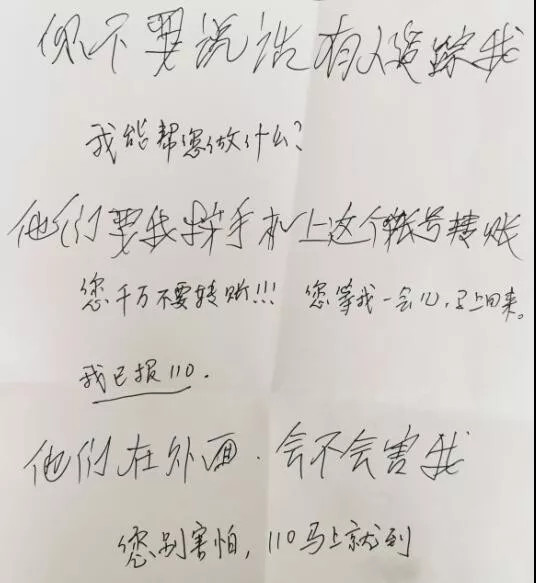 你不要说话有人追踪我
我能帮您做什么?
他们要我按手机上这个账号转账
您千万不要转账!!! 您等我一会儿,马上回来。
我已报110.
他们在外面.会不会害我
您别害怕,110马上就到